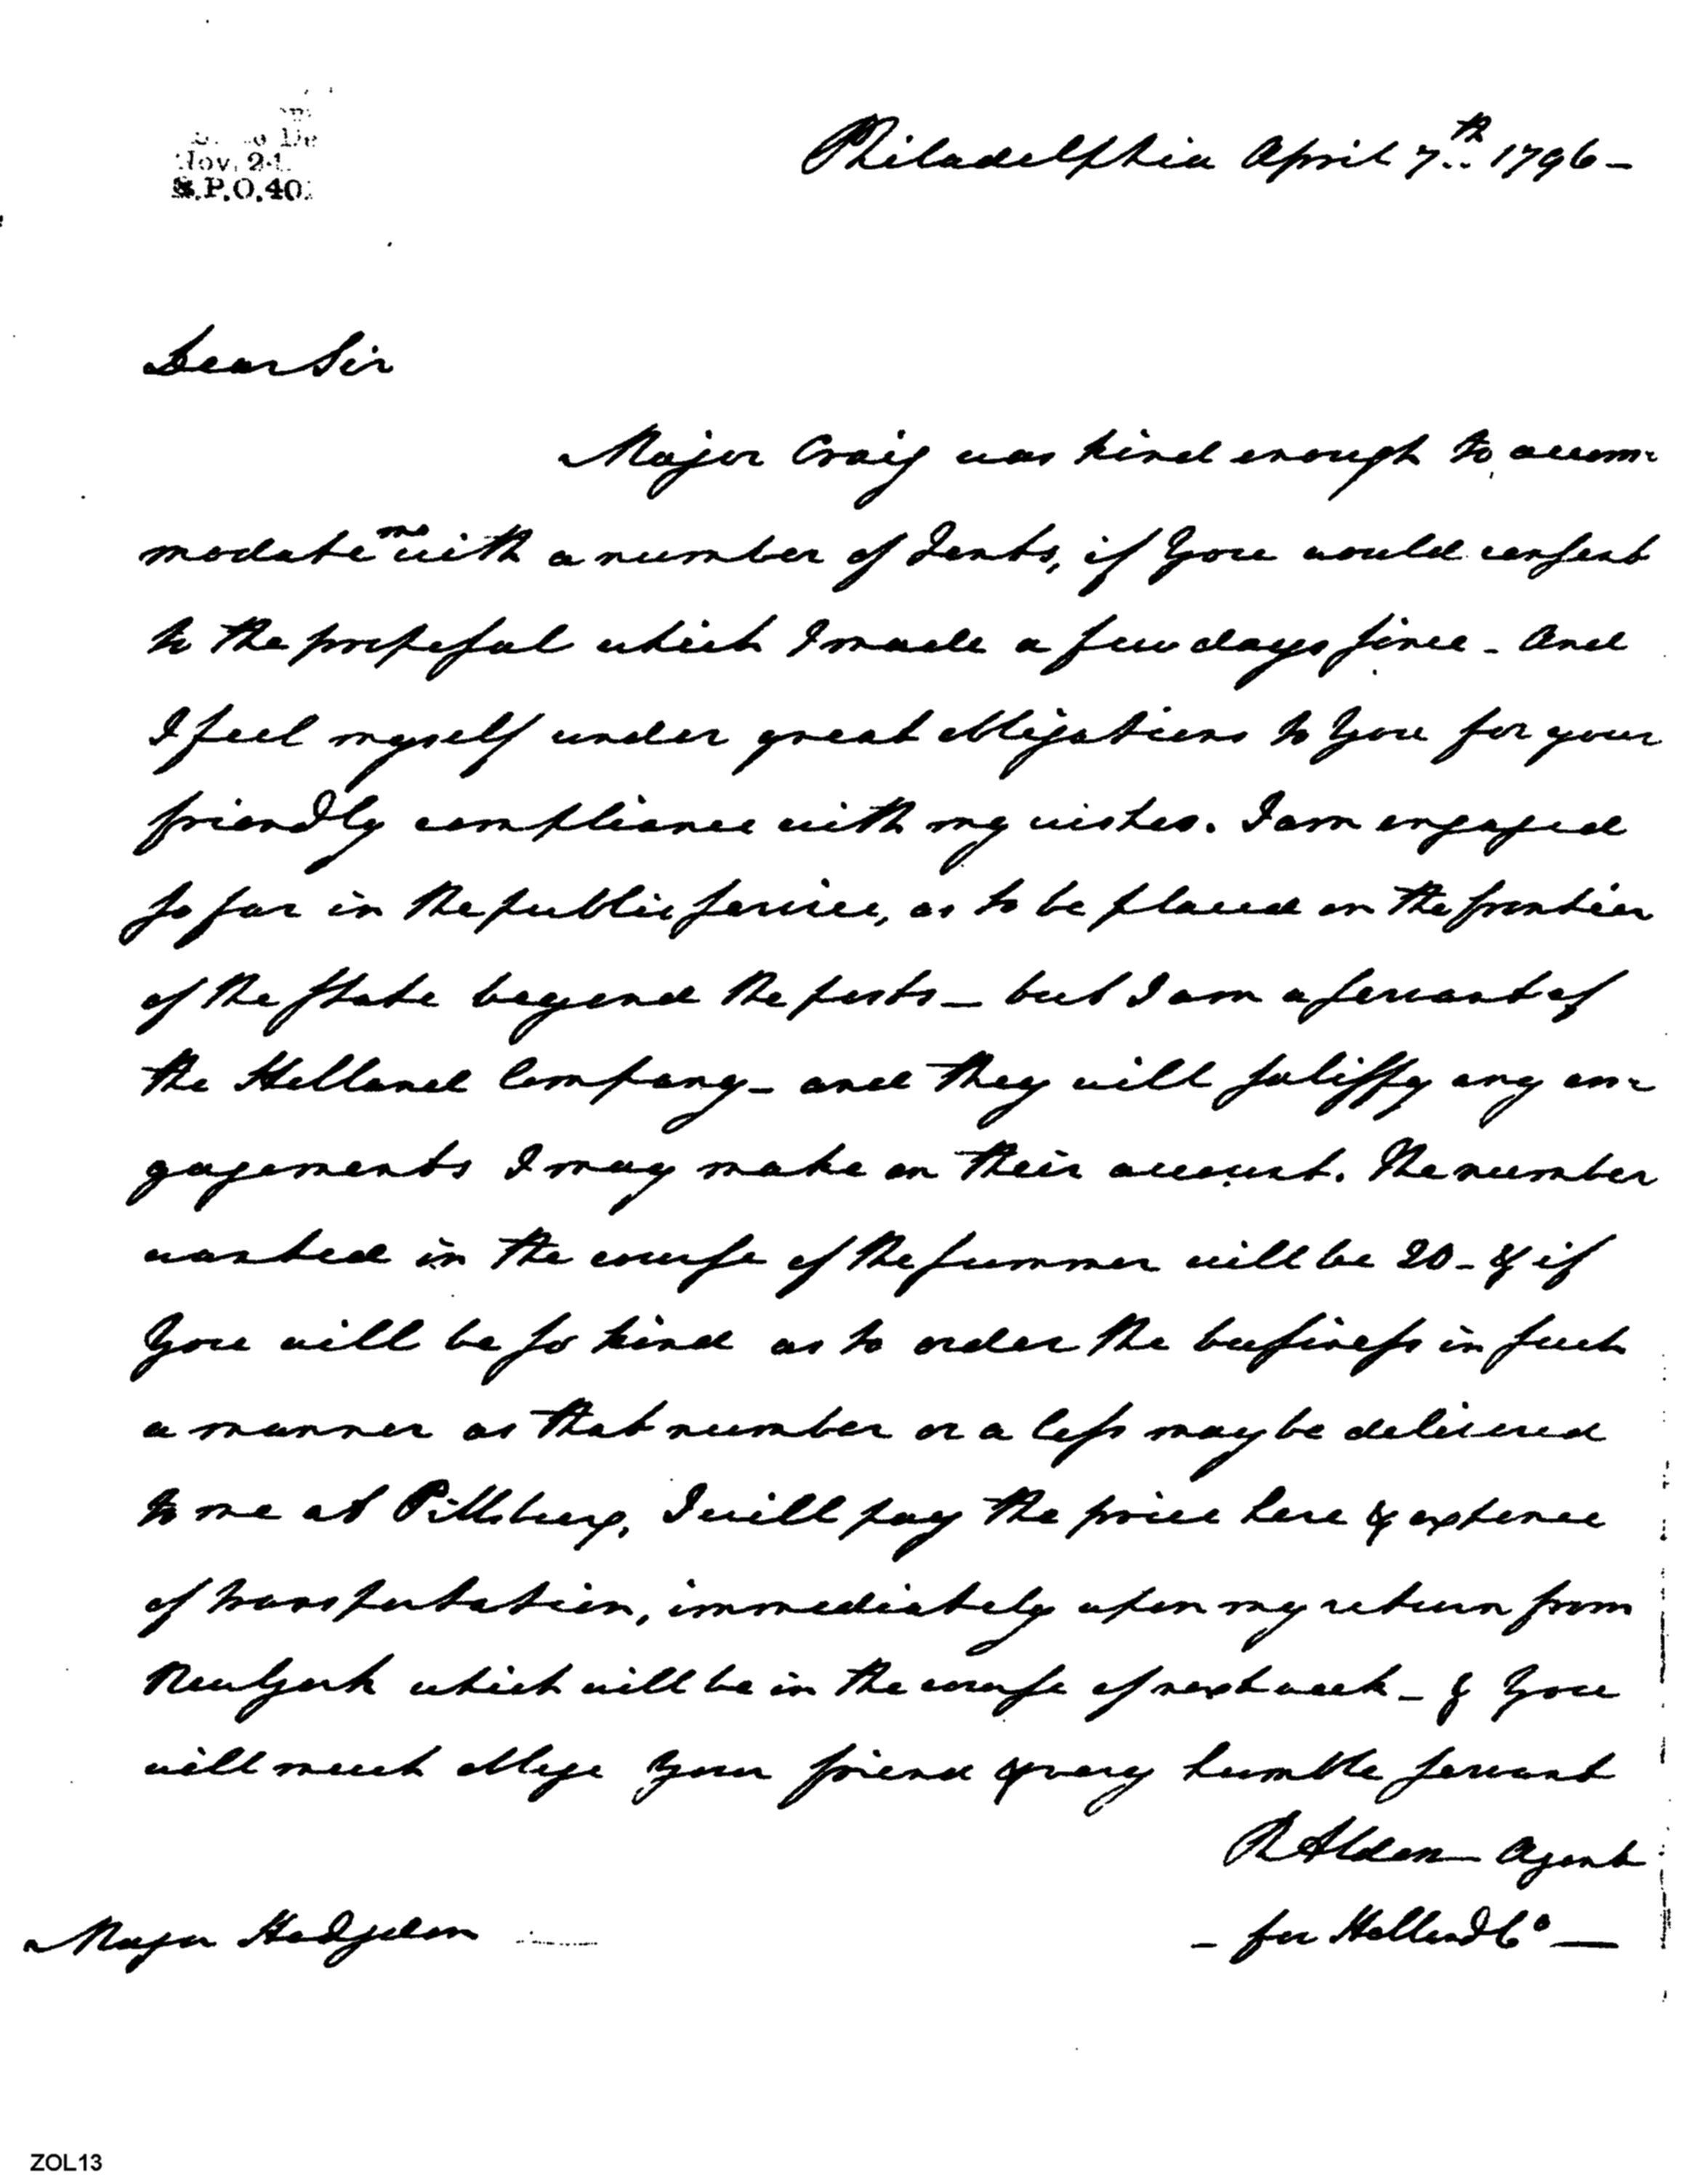 Nov. 24.
S.P.O. 40
Philadelphia April 7th. 1796 -
Dear Sir
Major Craig was kind enough to accom-
modate me with a number of Tents, if You would consent
to the proposal which I made a few days since - And
I feel myself under great obligations to You for your
friendly compliance with my wishes. I am engaged
so far in the public service, as to be placed on the frontier
of the State beyond the posts - but I am a servant of
the Holland Company - and they will satisfy any en-
gagements I may make on their account. The number
wanted in the course of the summer will be 20 - & if
You will be so kind as to order the business in such
a manner as that number or a less may be delivered
to me at Pittsburg, I will pay the price here & expence
of transportation, immediately upon my return from
New York which will be in the course of next week - & You
will much oblige Your friend & very humble servant
R Alden Agent
Major Hodgdon
- for Holland Co -
ZOL13